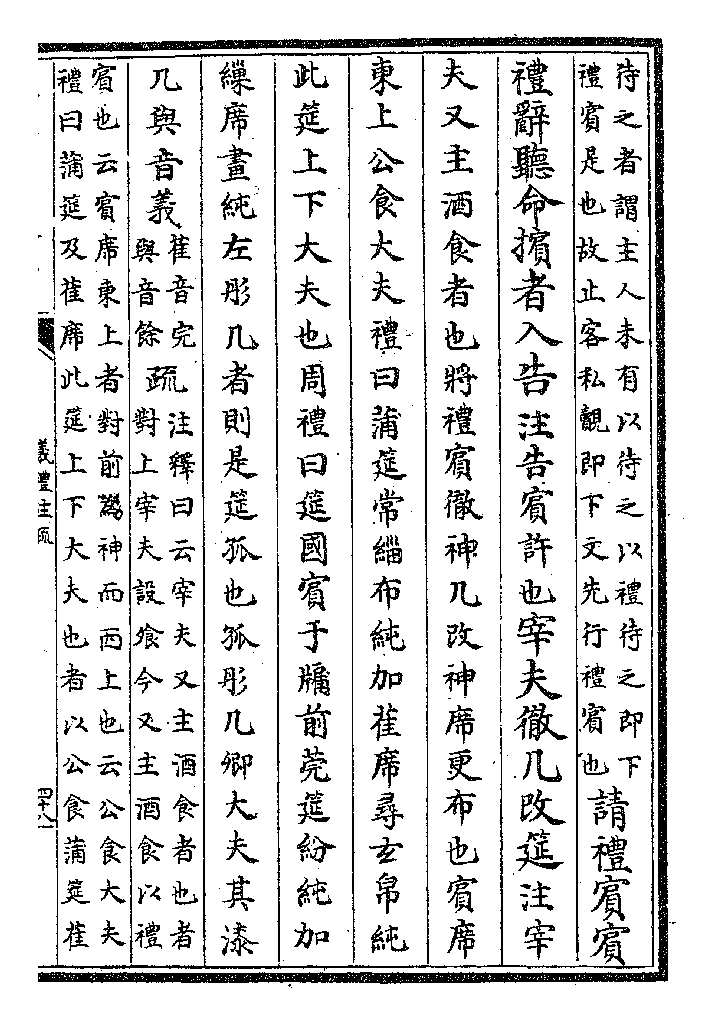 待之者謂主人未有以待之以禮待之即下
禮賓是也故止客私覿即下文先行禮賓也
請禮賓賓
禮辭聽命擯者入告注告賓許也宰夫徹几改筵注宰
夫又主酒食者也將禮賓徹神几改神席更布也賓席
東上公食大夫禮曰蒲筵常緇布純加萑席尋玄帛純
此筵上下大夫也周禮曰筵國賓于牖前莞筵紛純加
繅席畫純左彤几者則是筵孤也孤彤几卿大夫其漆
几與音義
萑音完
與音餘
疏
注釋曰云宰夫又主酒食者也者
對上宰夫設飧今又主酒食以禮
賓也云賓席東上者對前為神而西上也云公食大夫
禮曰蒲筵及萑席此筵上下大夫也者以公食蒲筵萑
禮註疏
四十八